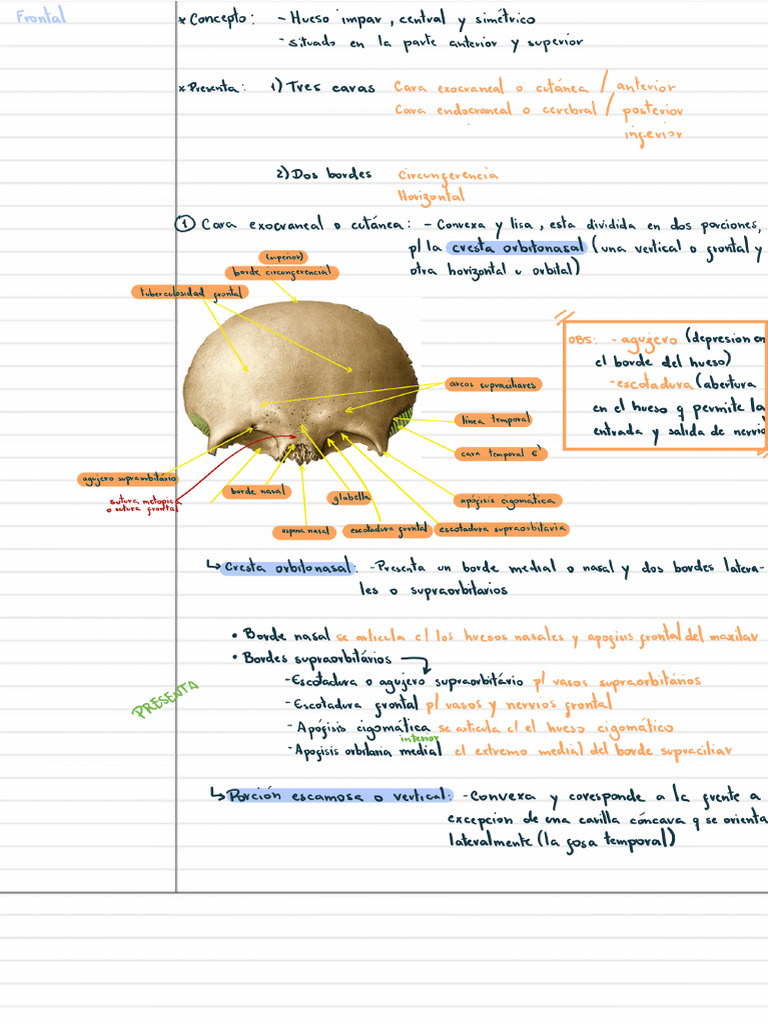 Frontal
* Concepto: - Hueso impar, central y simétrico
- situado en la parte anterior y superior
* Presenta: 1) Tres caras Cara exocraneal o cutánea / anterior
Cara endocraneal o cerebral / posterior
inferior
2) Dos bordes Circunferencia
Horizontal
① Cara exocraneal o cutánea: - Convexa y lisa, esta dividida en dos porciones,
p/ la cresta orbitonasal (una vertical o frontal y
otra horizontal u orbital)
(superior)
borde circunferencial
tuberculosidad frontal
OBS: - agujero (depresion en
el borde del hueso)
- escotadura (abertura
en el hueso q permite la
entrada y salida de nervio
arcos supraciliares
línea temporal
cara temporal
agujero supraorbitário
borde nasal
glabella
apófisis cigomática
sutura metopica
o sutura frontal
espina nasal
escotadura frontal
escotadura supraorbitaria
↳ Cresta orbitonasal: - Presenta un borde medial o nasal y dos bordes latera-
les o supraorbitarios
• Borde nasal se articula c/ los huesos nasales y apofisis frontal del maxilar
• Bordes supraorbitários
PRESENTA
- Escotadura o agujero supraorbitário p/ vasos supraorbitários
- Escotadura frontal p/ vasos y nervios frontal
- Apófisis cigomática se articula c/ el hueso cigomático
interior
- Apofisis orbitaria medial el extremo medial del borde supraciliar
↳ Porción escamosa o vertical: - Convexa y coresponde a la frente a
excepcion de una carilla cóncava q se orienta
lateralmente (la fosa temporal)